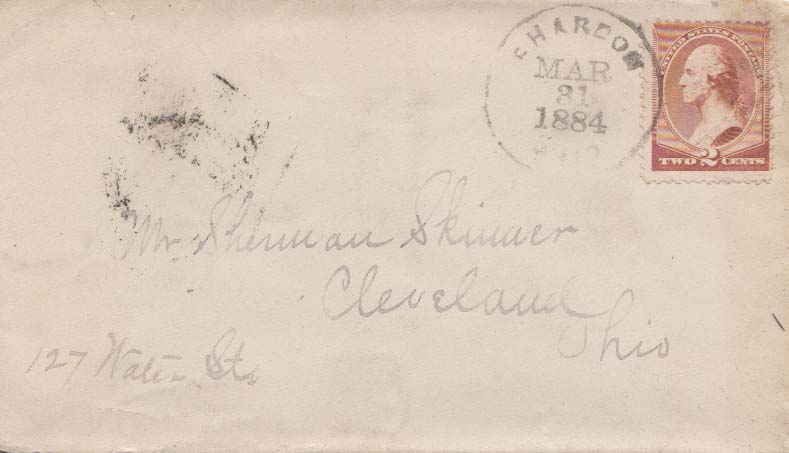 CHARDON
MAR
31
1884
UNITED STATES POSTAGE
TWO 2 CENTS
Mr Sherman Skinner
Cleveland
Ohio
127 Water St.